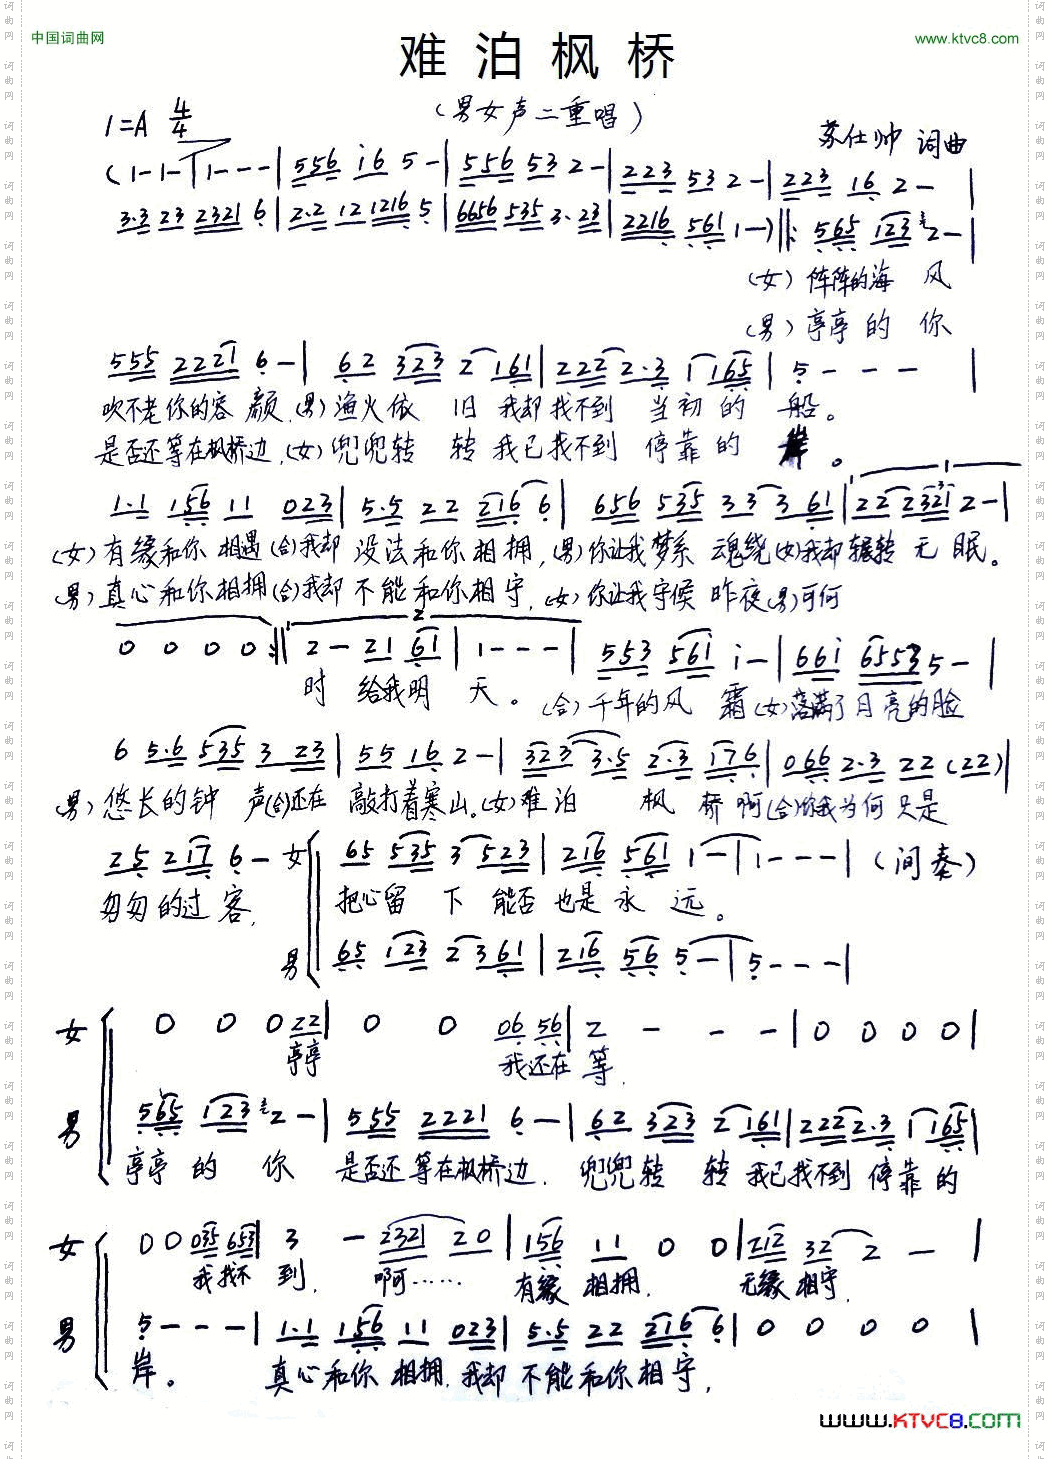 中国词曲网
www.ktvc8.com
难泊枫桥
(男女声二重唱)
1=A 4/4
苏仕帅 词曲
(1-1-|1---|556 i6 5-|556 53 2-|223 53 2-|223 16 2-|
3·3 23 2321 6|2·2 12 1216 5|6656 535 3·23|2216 561 1-)‖: 565 123 2-|
(女)阵阵的海 风
(男)亭亭 的 你
555 2221 6-|62 323 2 161|222 2·3 1 165|5---|
吹不老你的容 颜.(男)渔火依 旧 我却找不到 当初的 船。
是否还等在枫桥边.(女)兜兜转 转 我已找不到 停靠的 岸。
1·1 156 11 023|5·5 22 216 6|656 535 33 3 61|22 2321 2-|
(女)有缘和你 相遇(合)我却 没法和你相拥.(男)你让我梦系 魂绕(女)我却辗转 无 眠。
(男)真心和你相拥(合)我却 不能和你相守.(女)你让我守候 昨夜(男)可何
0 0 0 0:‖2-21 61|1---|553 561 i-|66i 6553 5-|
时 给我明 天。(合)千年的风 霜(女)落满了月亮的脸
6 5·6 535 3 23|55 16 2-|323 3·5 2·3 176|066 2·3 22 (22)|
(男)悠长的钟 声(合)还在 敲打着寒山。(女)难泊 枫 桥啊(合)你我为何只是
25 217 6- 女 65 535 3 523|216 561 1-|1---|(间奏)
匆匆的过 客. 把心留 下 能否 也是 永 远。
男 65 123 2 361|216 56 5-|5---|
女 0 0 0 22|0 0 06 56|2 - - -|0 0 0 0|
亭亭 我还在 等.
男 565 123 2-|555 2221 6-|62 323 2 161|222 2·3 1 165|
亭亭 的 你 是否还 等在枫桥边. 兜兜转 转 我已找不到 停靠的
女 0 0 035 653|3 - 2321 20|156 11 0 0|212 32 2 -|
我找不 到. 啊…… 有缘 相拥. 无缘 相守.
男 5---|1·1 156 11 023|5·5 22 216 6|0 0 0 0|
岸。 真心和你 相拥.我却 不能和你相守.
www.KTVC8.com